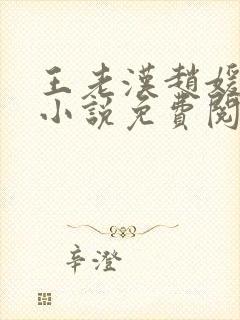 王老漢趙媛
小說免費閱
辛澄